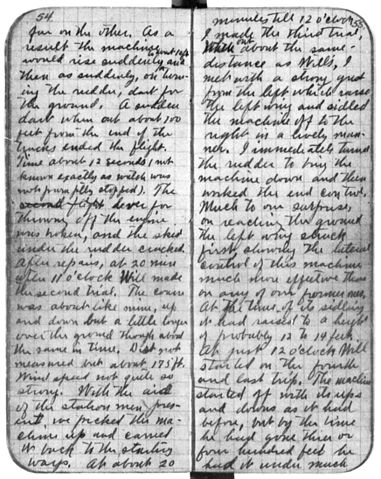 54
far on the other. As a
result the machine
would rise suddenly to about 10 ft. and
then as suddenly, on turn-
ing the rudder, dart for
the ground. A sudden
dart when out about 100
feet from the end of the
tracks ended the flight.
Time about 12 seconds (not
known exactly as watch was
not promptly stopped). The
flight lever for
throwing off the engine
was broken, and the skid
under the rudder cracked.
After repairs, at 20 min
after 11 o'clock Will made
the second trial. The course
was about like mine, up
and down but a little longer
over the ground though about
the same in time. Dist. not
measured but about 175 ft.
Wind speed not quite so
strong. With the aid
of the station men pres-
ent, we picked the ma-
chine up and carried
it back to the starting
ways. At about 20
55
minutes till 12 o'clock
I made the third trial.
When out about the same
distance as Will's, I
met with a strong gust
from the left which raised
the left wing and sidled
the machine off to the
right in a lively man-
ner. I immediately turned
the rudder to bring the
machine down and then
worked the end control.
Much to our surprise,
on reaching the ground
the left wing struck
first, showing the lateral
control of this machine
much more effective than
on any of our former ones.
At the time of its sidling
it had raised to a height
of probably 12 to 14 feet.
At just 12 o'clock Will
started on the fourth
and last trip. The machine
started off with its ups
and downs as it had
before, but by the time
he had gone three or
four hundred feet he
had it under much